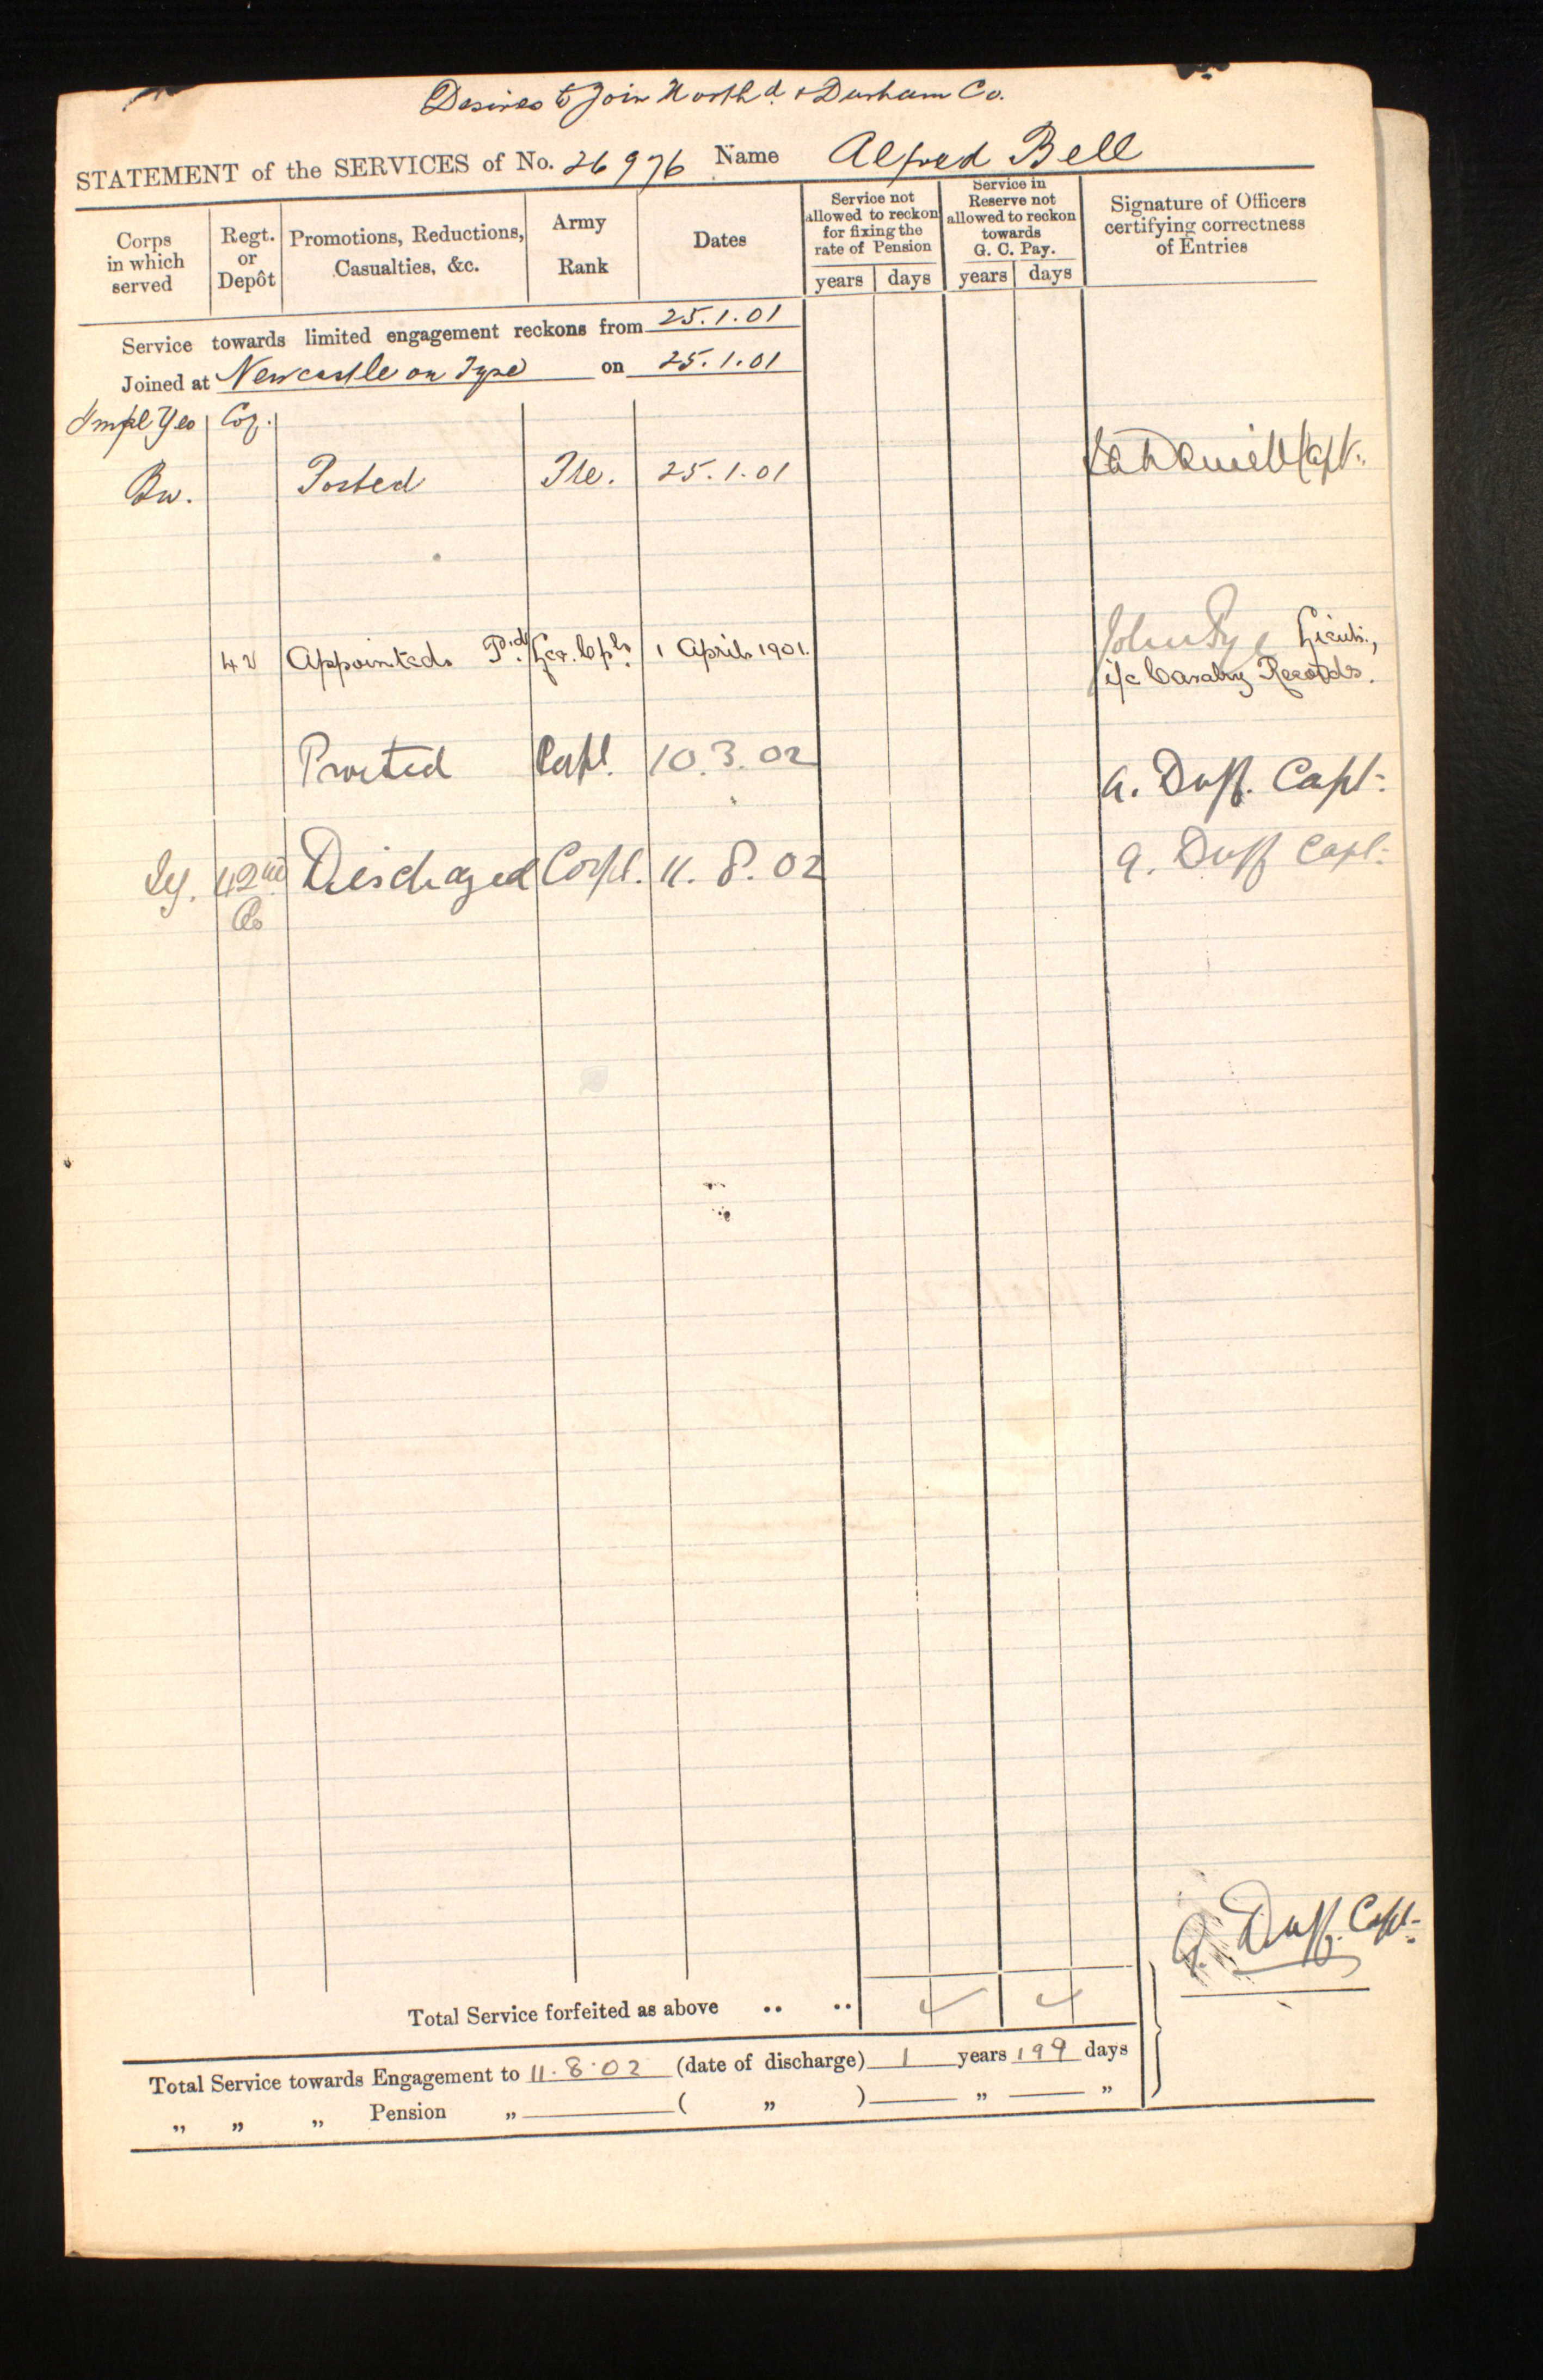 Desires to Join North d. & Durham Co.
STATEMENT of the SERVICES of No. 26976 Name Alfred Bell
Corps in which served
Regt. or Depôt
Promotions, Reductions, Casualties, &c.
Army Rank
Dates
Service not allowed to reckon for fixing the rate of Pension
years days
Service in Reserve not allowed to reckon towards G. C. Pay.
years days
Signature of Officers certifying correctness of Entries
Service towards limited engagement reckons from 25.1.01
Joined at Newcastle on Tyne on 25.1.01
Impl Yeo Coy.
Posted Pte. 25.1.01 Capt.
42 Appointed P.d Lce. Cpl. 1 April 1901. John Lieut.,
i/c Cavalry Records.
Promoted Corpl. 10.3.02 A. Duff. Capt.
I.Y. 42nd Discharged Corpl. 11.8.02 A. Duff Capt.
Co
A. Duff. Capt.
Total Service forfeited as above .. ..
Total Service towards Engagement to 11.8.02 (date of discharge) 1 years 199 days
„ „ „ Pension „ ( „ ) „ „